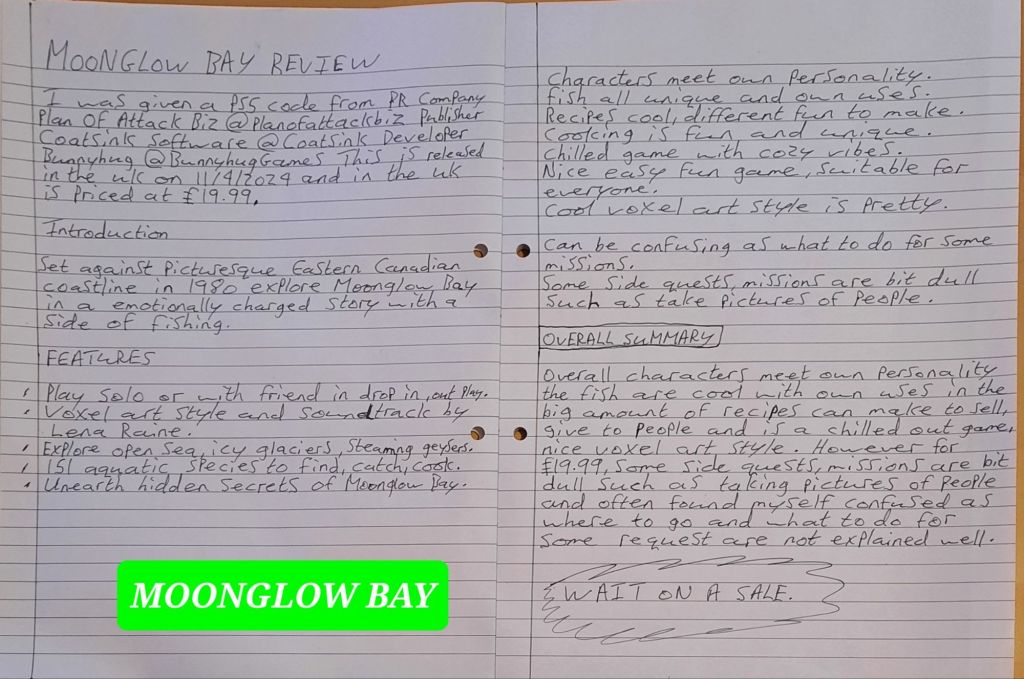 MOONGLOW BAY REVIEW
I was given a PS5 code from PR Company
Plan Of Attack Biz @Planofattackbiz Publisher
Coatsink Software @Coatsink Developer
Bunnyhug @BunnyhugGames This is released
in the uk on 11/4/2024 and in the uk
is Priced at £19.99.
Introduction
Set against Picturesque Eastern Canadian
coastline in 1980 explore Moonglow Bay
in a emotionally charged story with a
side of fishing.
FEATURES
Play Solo or with friend in drop in, out Play.
Voxel art style and soundtrack by
Lena Raine.
Explore open sea, icy glaciers, steaming geysers.
151 aquatic species to find, catch, cook.
Unearth hidden secrets of Moonglow Bay.
MOONGLOW BAY
Characters meet own Personality.
fish all unique and own uses.
Recipes cool, different fun to make.
Cooking is fun and unique.
Chilled game with cozy vibes.
Nice easy fun game, suitable for
everyone.
Cool voxel art style is Pretty.
Can be confusing as what to do for some
missions.
Some side quests, missions are bit dull
such as take Pictures of People.
OVERALL SUMMARY
Overall characters meet own Personality
the fish are cool with own uses in the
big amount of recipes can make to sell,
give to People and is a chilled out game,
nice voxel art style. However for
£19.99, some side quests, missions are bit
dull such as taking Pictures of People
and often found myself confused as
where to go and what to do for
some request are not explained well.
WAIT ON A SALE.